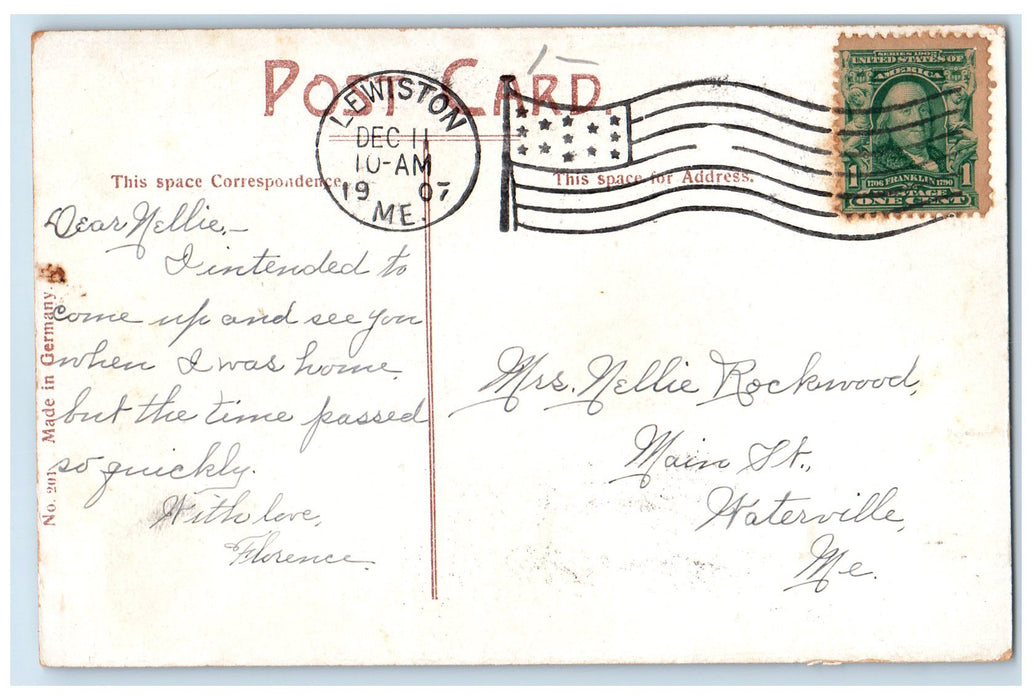 POST CARD.
LEWISTON
DEC 11
10-AM
1907
ME.
SERIES 1902
UNITED STATES OF
AMERICA
1 1706 FRANKLIN 1790 1
POSTAGE
ONE CENT
This space Correspondence.
This space for Address.
Dear Nellie,—
I intended to
come up and see you
when I was home,
but the time passed
so quickly.
With love,
Florence.
Mrs. Nellie Rockwood,
Main St.,
Waterville,
Me.
No. 201 Made in Germany.